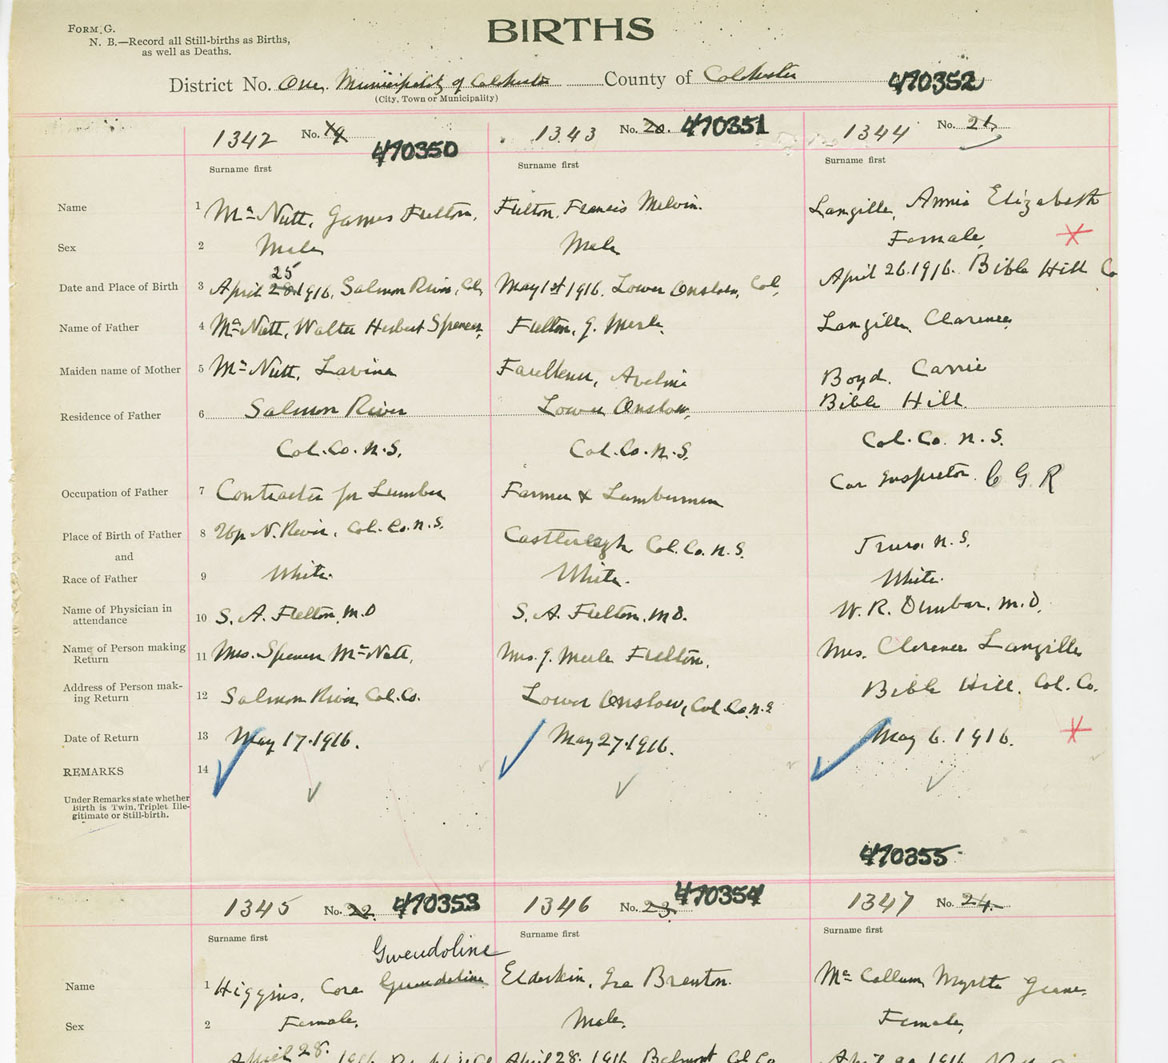 FORM G.
N. B.—Record all Still-births as Births,
as well as Deaths.
BIRTHS
District No. One, Municipality of Colchester County of Colchester 470352
(City, Town or Municipality)
1342 No. 19 470350
Surname first
1343 No. 20. 470351
Surname first
1344 No. 21.
Surname first
Name 1 McNutt, James Fulton, Fulton, Francis Melvin. Langille, Annie Elizabeth
Sex 2 Male Male Female
25
Date and Place of Birth 3 April 1916, Salmon River, Col, May 1st 1916. Lower Onslow, Col, April 26.1916. Bible Hill Co
Name of Father 4 McNutt, Walter Herbert Spencer, Fulton, J. Merle Langille, Clarence
Maiden name of Mother 5 McNutt, Lavina Faulkner, Aveline Boyd. Carrie
Residence of Father 6 Salmon River Lower Onslow, Bible Hill.
Col. Co. N.S. Col. Co. N.S. Col. Co. N.S.
Occupation of Father 7 Contractor for Lumber Farmer & Lumberman Car Inspector. C G R
Place of Birth of Father 8 Up N. River, Col. Co. N.S. Castlereagh Col. Co. N.S. Truro, N.S.
and
Race of Father 9 White. White. White.
Name of Physician in
attendance 10 S. A. Fulton, M.D S. A. Fulton, M.D. W. R. Dunbar, M.D.
Name of Person making
Return 11 Mrs. Spencer McNutt, Mrs. J. Merle Fulton, Mrs. Clarence Langille
Address of Person mak-
ing Return 12 Salmon River, Col. Co. Lower Onslow, Col. Co. N.S Bible Hill, Col. Co.
Date of Return 13 May 17.1916. May 27.1916. May 6.1916.
REMARKS 14
Under Remarks state whether
Birth is Twin, Triplet, Ille-
gitimate or Still-birth.
470355
1345 No. 22. 470353
Surname first
1346 No. 23. 470354
Surname first
1347 No. 24.
Surname first
Gwendoline
Name 1 Higgins, Cora Elderkin, Ira Brenton. McCallum, Myrtle Jeane,
Sex 2 Female, Male, Female,
April 28. 1916 April 28. 1916 Belmont Col Co April 1916